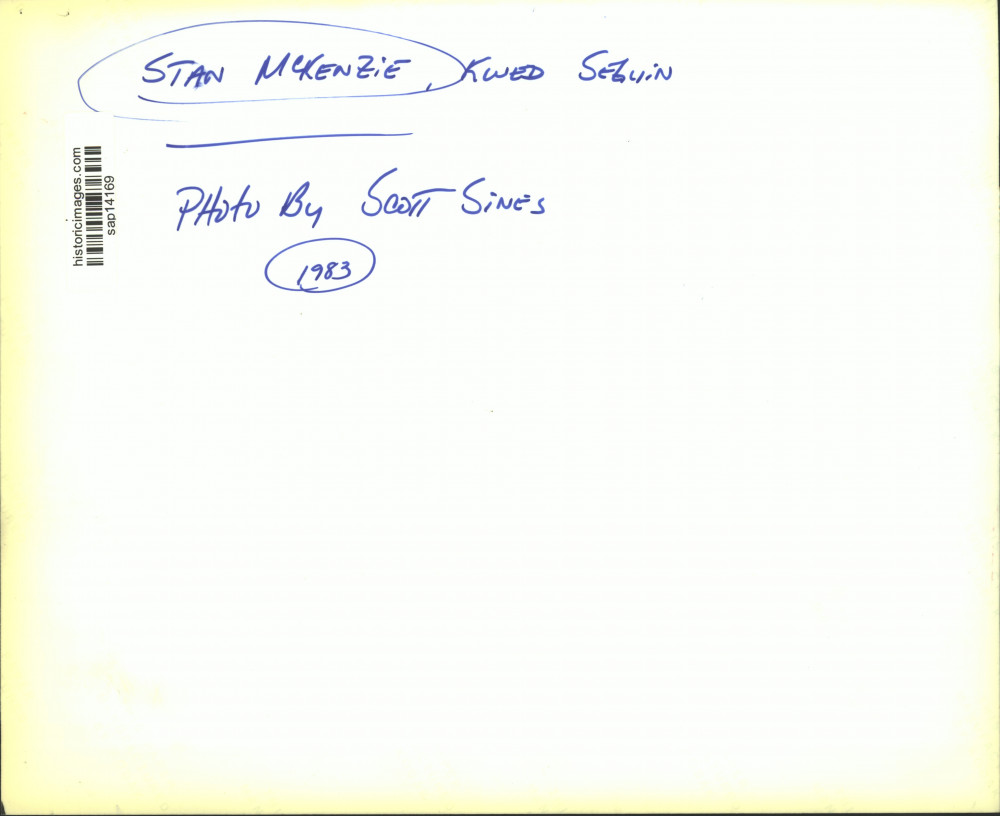 STAN McKENZiE, KWED SEGUiN
PHOto By SCOTT SiNES
1983
historicimages.com
sap14169